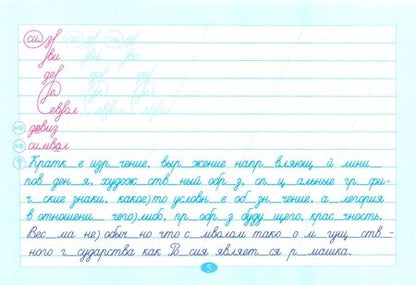 си зв си си
зви
дев
ев
еввол
на девиз
на символ
Кратк_е изр_чение, выр_жение напр_вляющ_й лини_
пов_ден_я, худож_ств_ный обр_з, сп_ц_альные гр_фи-
ч_ские знаки, какое)то условн_е об_зн_чение, а_легория
в отношени_ чего)либо, пр_обр_з буду_щего, крас_чность.
Вес_ма не) обыч_но что с_мволом тако_о м_гущ_ств_-
ного г_сударства как Ро_сия являет_ся р_машка.
5